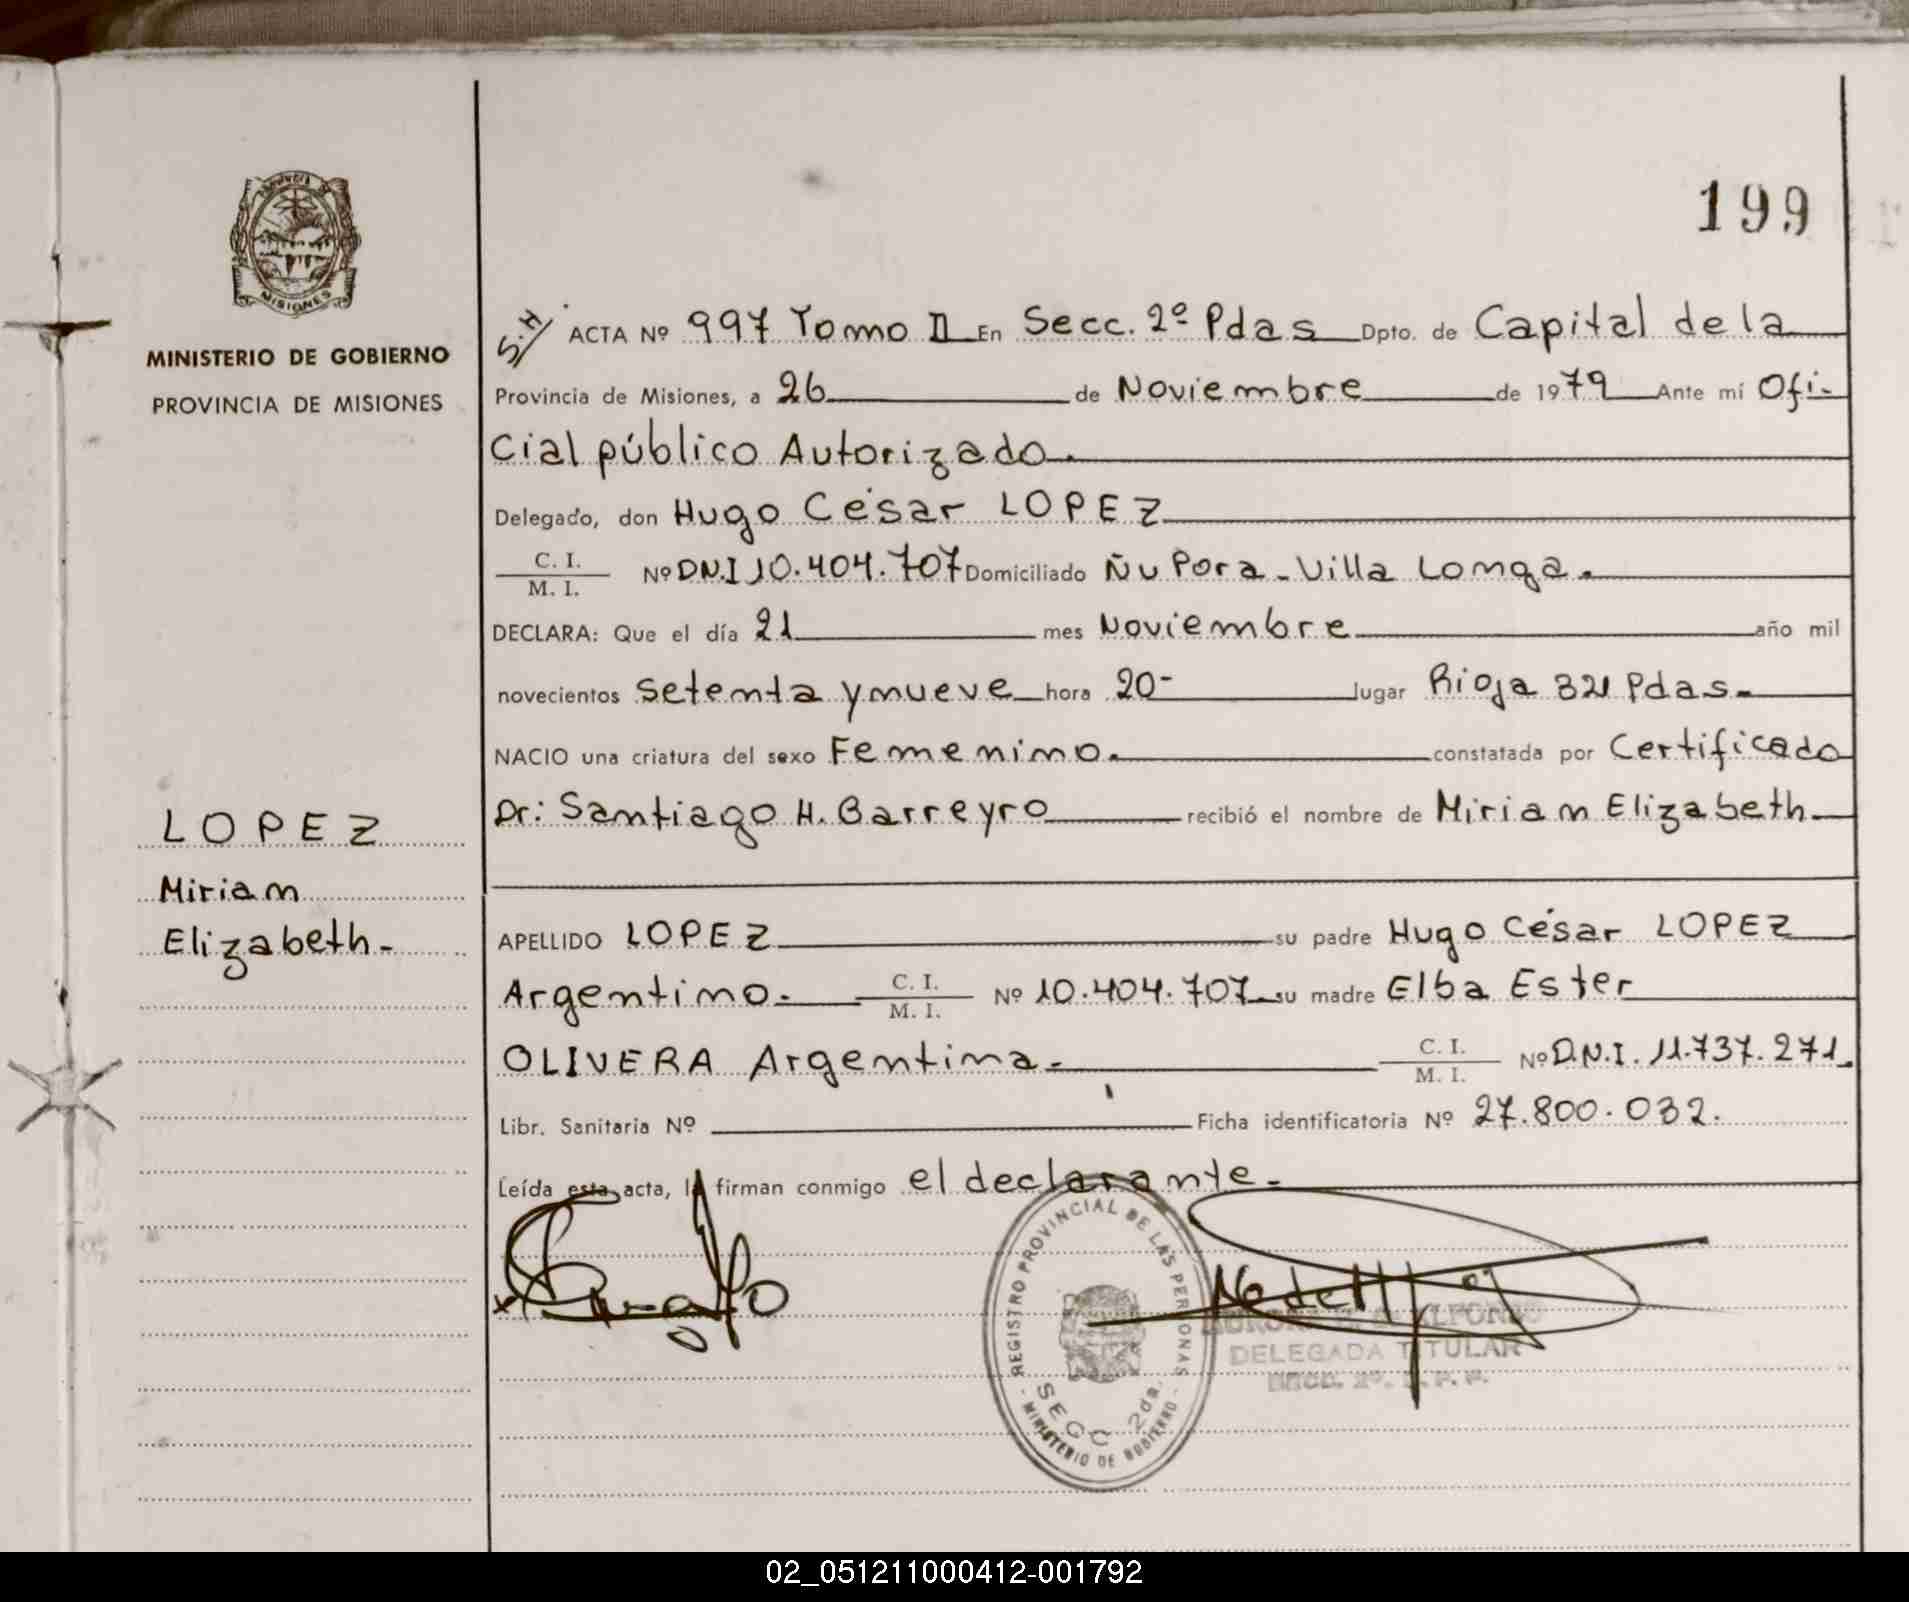 199
PROVINCIA DE
MISIONES
MINISTERIO DE GOBIERNO
PROVINCIA DE MISIONES
LOPEZ
Miriam
Elizabeth-
S.H
ACTA Nº 997 Tomo II En Secc. 2º Pdas Dpto. de Capital de la
Provincia de Misiones, a 26 de Noviembre de 1979 Ante mí Ofi-
cial público Autorizado.
Delegado, don Hugo César LOPEZ
C. I.
M. I. Nº D.N.I 10.404.707 Domiciliado Ñu Pora - Villa Longa.
DECLARA: Que el día 21 mes Noviembre año mil
novecientos setenta y nueve hora 20- lugar Rioja 321 Pdas.
NACIO una criatura del sexo Femenino. constatada por Certificado
Dr: Santiago H. Barreyro recibió el nombre de Miriam Elizabeth
APELLIDO LOPEZ su padre Hugo César LOPEZ
Argentino. C. I.
M. I. Nº 10.404.707 su madre Elba Ester
OLIVERA Argentina. C. I.
M. I. Nº D.N.I. 11.737.271.
Libr. Sanitaria Nº Ficha identificatoria Nº 27.800.032.
Leída esta acta, la firman conmigo el declarante.
REGISTRO PROVINCIAL DE LAS PERSONAS
- MINISTERIO DE GOBIERNO -
SECC 2da.
ALFONSO
DELEGADA TITULAR
02_051211000412-001792